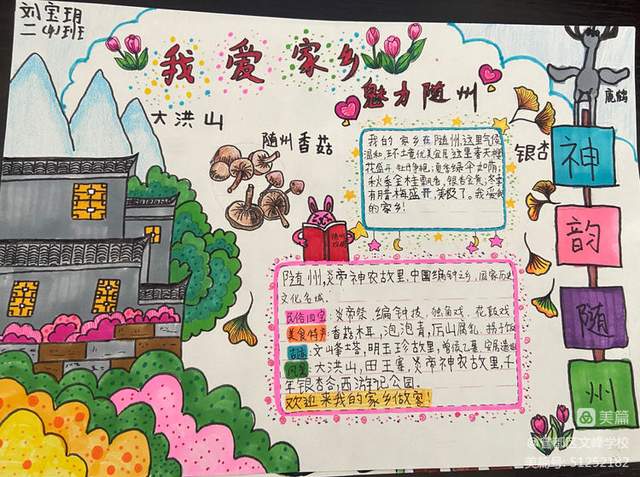 刘宝玥
二(4)班
我爱家乡
魅力随州
大洪山
随州香菇
银杏
鹿鹤
神
韵
随
州
我的家乡在随州,这里气候
温和,环土壹优美宜居,这里春天樱
花盛开,牡丹争艳;夏季绿草如茵;
秋季金桂飘香,银杏金黄;冬季
有腊梅盛开,美极了。我爱我
的家乡!
随州,炎帝神农故里,中国编钟之乡,国家历史
文化名城.
民俗旧宝 炎帝祭 编钟 技, 独角戏. 花鼓戏
美食特产 香菇木耳,泡泡青,厉山腐乳 拐子饭
古迹 文峰塔,明玉珍故里,曾侯乙墓,安居遗址
风景 大洪山,田王寨,炎帝神农故里,千
年银杏谷,西游记公园.
欢迎来我的家乡做客!
美篇
@宜都区文峰学校
美篇号: 51252182